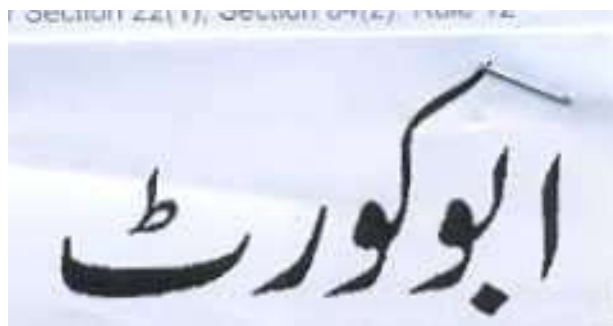 r Section 22(1), Section 84(2) Rule 12
ابوکورٹ